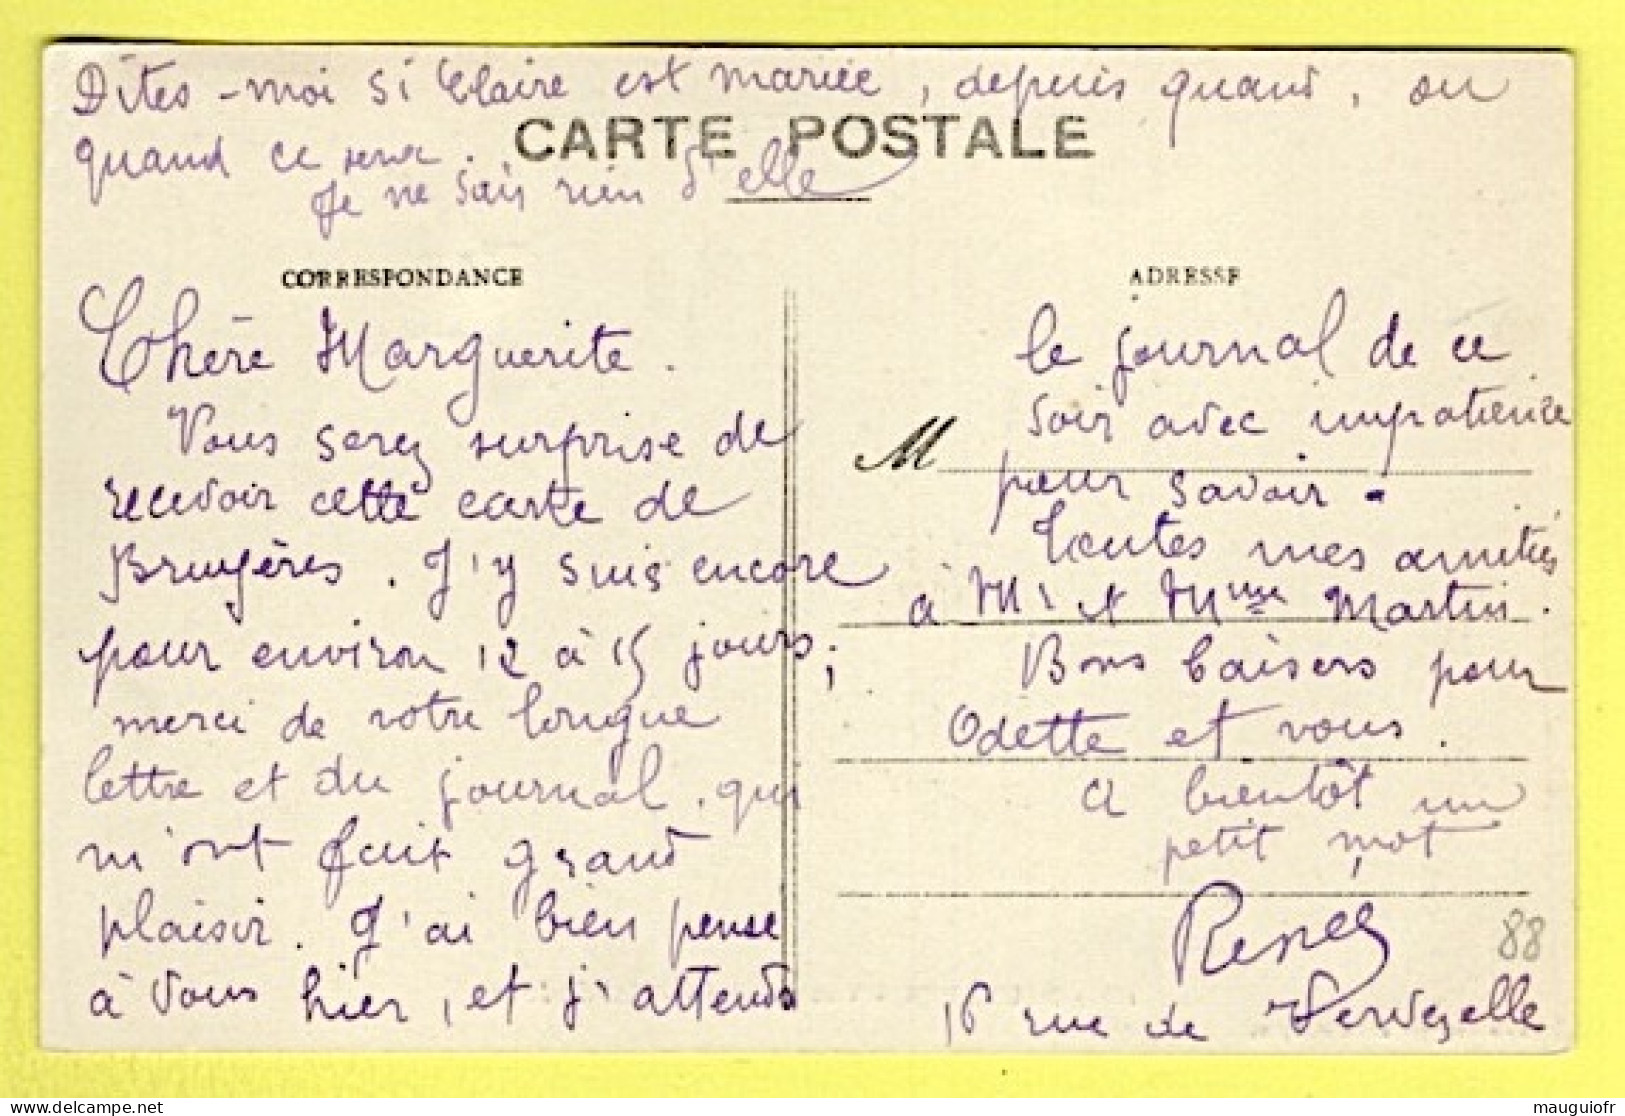 Dites-moi si Claire est mariée, depuis quand, ou
quand ce sera.
CARTE POSTALE
Je ne sais rien d'elle
CORRESPONDANCE
Chère Marguerite.
Vous serez surprise de
recevoir cette carte de
Bruyères. J'y suis encore
pour environ 12 à 15 jours;
merci de votre longue
lettre et du journal, qui
m'ont fait grand
plaisir. J'ai bien pensé
à vous hier, et j'attends
ADRESSE
le journal de ce
soir avec impatience
M
pour savoir.
Toutes mes amitiés
à Mr et Mme Martin.
Bons baisers pour
Odette et vous.
A bientôt un
petit mot
Renée
88
16 rue de
mauguiofr